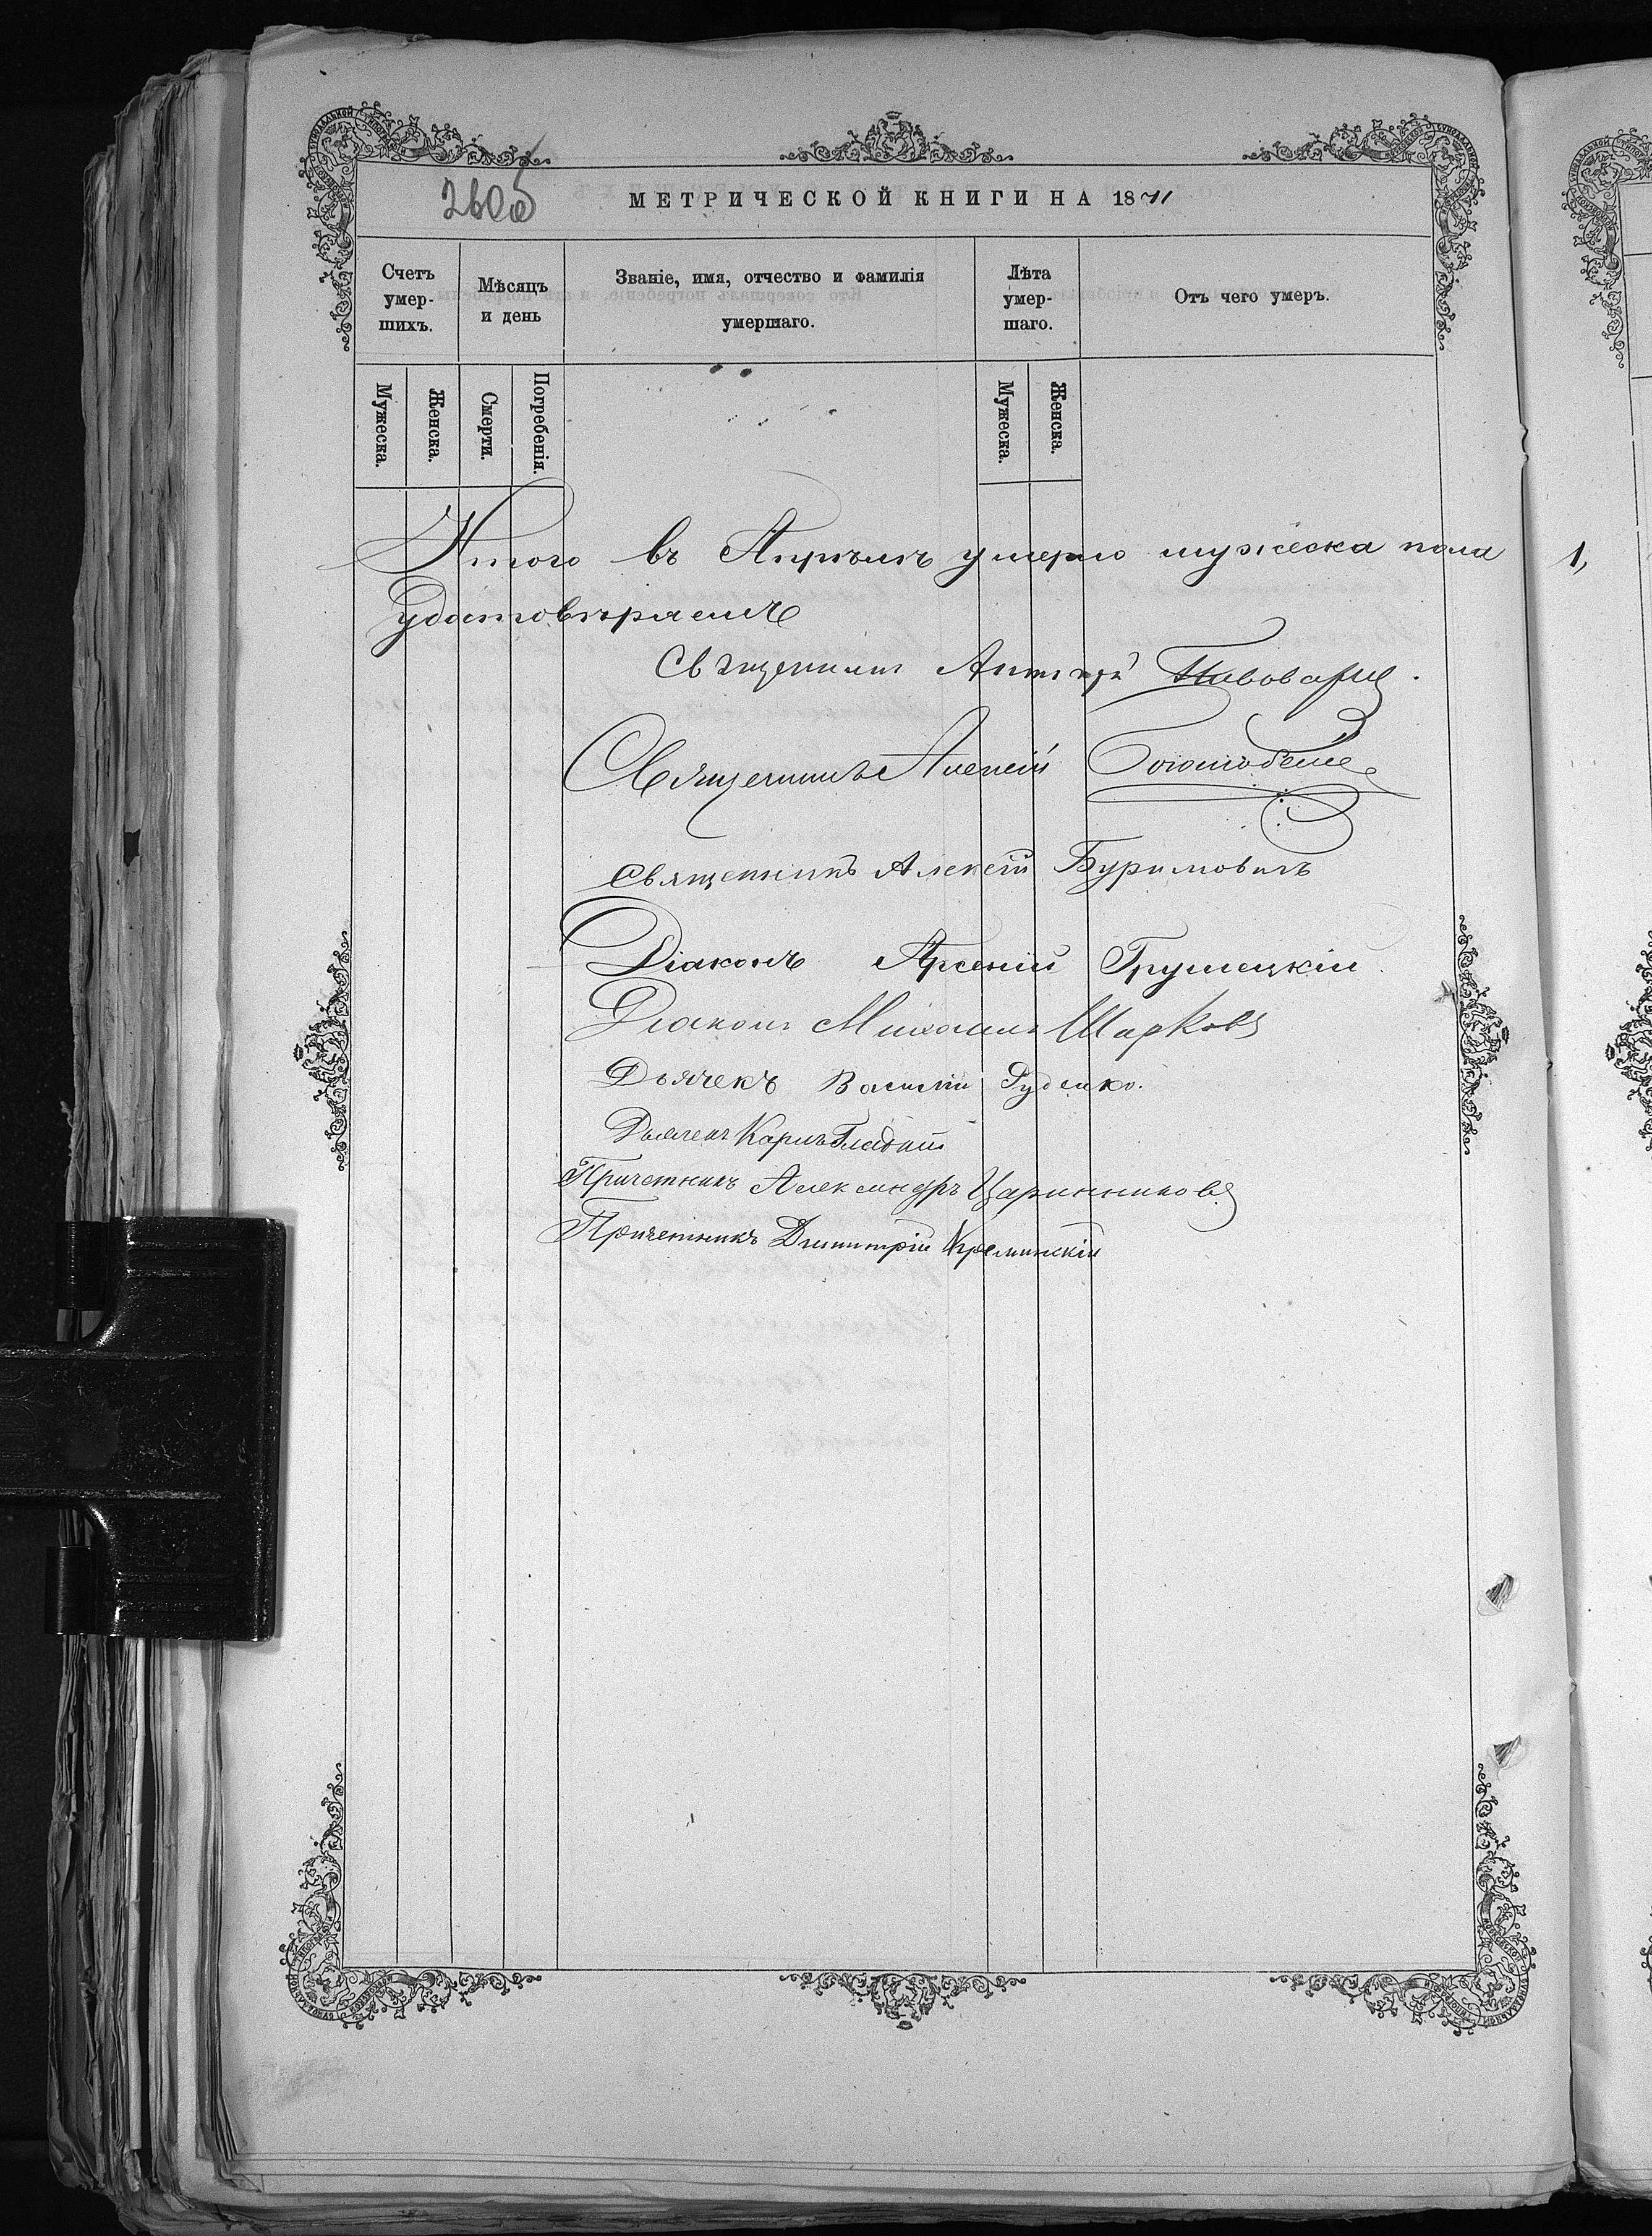 2605
МЕТРИЧЕСКОЙ КНИГИ НА 1871
Счетъ умер-шихъ.
Мѣсяцъ и день
Званіе, имя, отчество и фамилія умершаго.
Лѣта умер-шаго.
Отъ чего умеръ.
Мужеска.
Женска.
Смерти.
Погребенія.
Мужеска.
Женска.
Итого въ Апрѣлѣ умерло мужеска пола 1,
удостовѣряемъ
Священникъ Пивоваровъ.
Священникъ Алексій
Священникъ Алексій Буримовичъ
Діаконъ Арсеній Грушецкій.
Діаконъ Михаилъ Шарковъ
Дьячекъ Василій Руденко.
Дьячекъ Карпъ Гладкій
Причетникъ Александръ Царинниковъ
Причетникъ Димитрій Креминскій